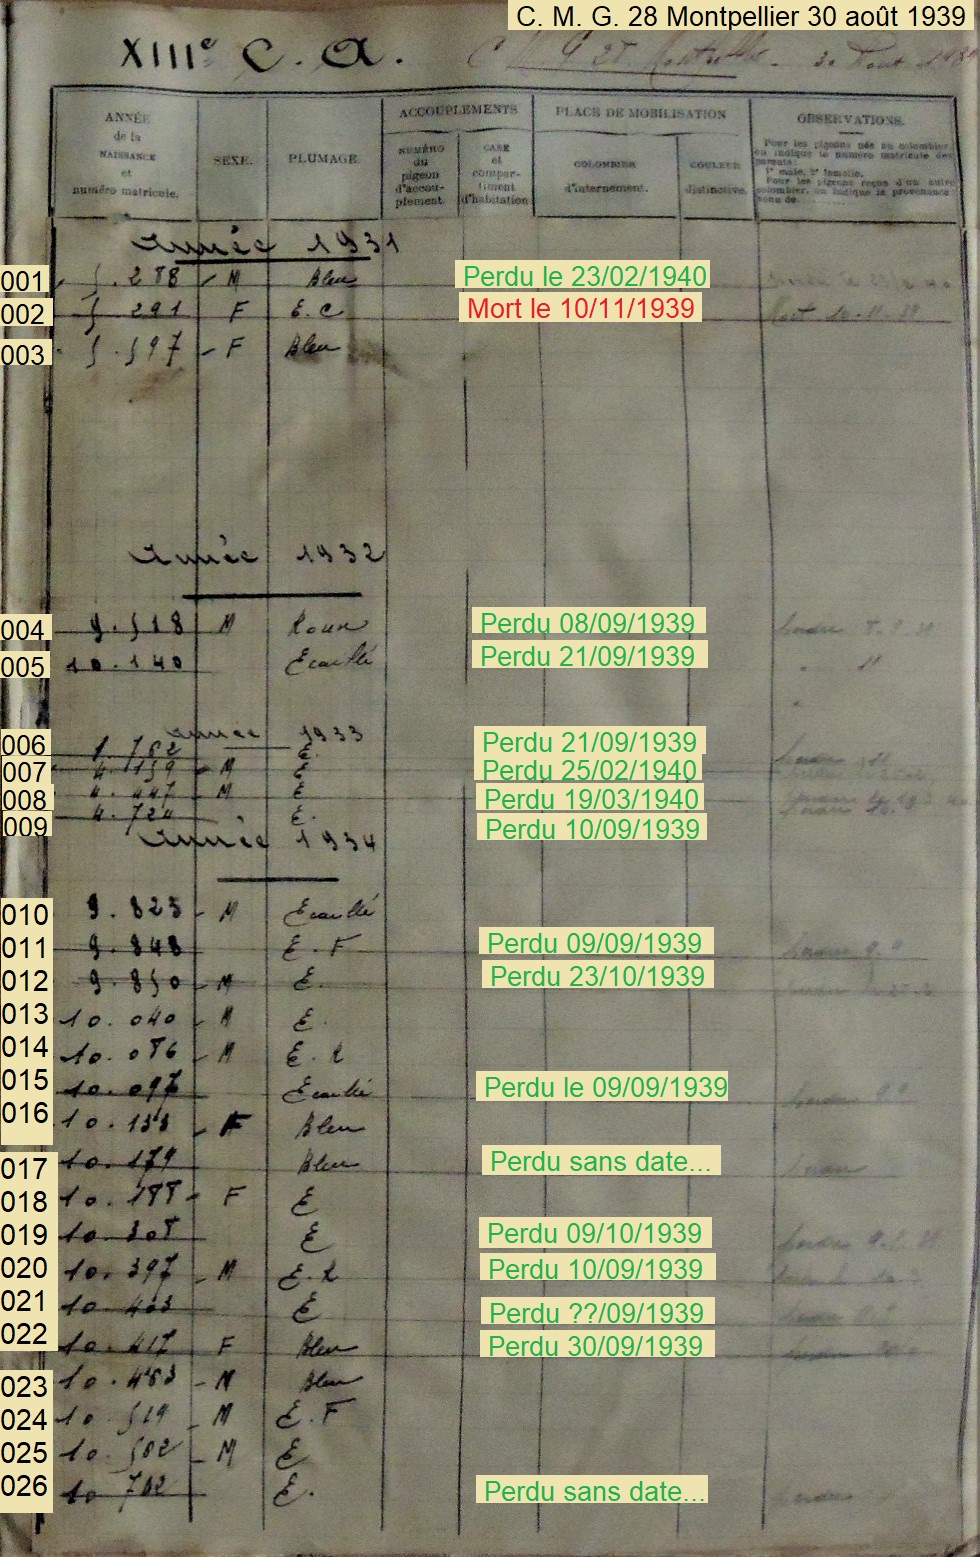 C. M. G. 28 Montpellier 30 août 1939
XIIIe C. A.
ANNÉE de la NAISSANCE et numéro matricule.
SEXE.
PLUMAGE.
ACCOUPLEMENTS
NUMÉRO du pigeon d'accou- plement.
CASE et compar- timent d'habitation
PLACE DE MOBILISATION
COLOMBIER d'internement.
COULEUR distinctive.
OBSERVATIONS.
Pour les pigeons nés au colombier, on indique le numéro matricule des parents:
1° mâle, 2° femelle.
Pour les pigeons reçus d'un autre colombier, on indique la provenance: venu de
Année 1931
001 5.288 M Bleu Perdu le 23/02/1940
002 5.291 F E.C Mort le 10/11/1939 Mort 10.11.39
003 5.597 F Bleu
Année 1932
004 9.518 M Roux Perdu 08/09/1939
005 10.140 Ecaillé Perdu 21/09/1939
Année 1933
006 1.762 E. Perdu 21/09/1939
007 4.159 M E Perdu 25/02/1940
008 4.447 M E Perdu 19/03/1940
009 4.724 E. Perdu 10/09/1939
Année 1934
010 9.823 M Ecaillé
011 9.848 E.F Perdu 09/09/1939
012 9.850 M E. Perdu 23/10/1939
013 10.040 M E.
014 10.086 M E.R
015 10.097 Ecaillé Perdu le 09/09/1939
016 10.133 F Bleu
017 10.179 Bleu Perdu sans date...
018 10.188 F E
019 10.308 E Perdu 09/10/1939
020 10.397 M E.R Perdu 10/09/1939
021 10.403 E Perdu ??/09/1939
022 10.417 F Bleu Perdu 30/09/1939
023 10.483 M Bleu
024 10.519 M E.F
025 10.502 M E
026 10.762 E. Perdu sans date...